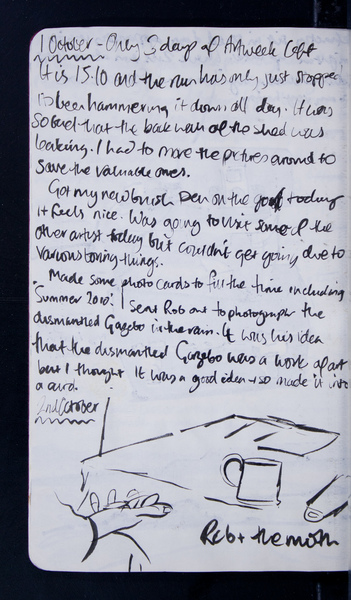 1 October - Only 3 days of Artweek left
It is 15.10 and the rain has only just stopped
is been hammering it down all day. It was
so bad that the back wall of the shed was
leaking. I had to move the pictures around to
save the valuable ones.
Got my new brush pen on the go today
it feels nice. Was going to visit some of the
other artist today but couldn't get going due to
various boring things.
Made some photo cards to fill the time including
"Summer 2010". I sent Rob out to photograph the
dismantled Gazebo in the rain. It was his idea
that the dismantled Gazebo was a work of art
but I thought it was a good idea + so made it into
a card.
2nd October
Rob + the moth